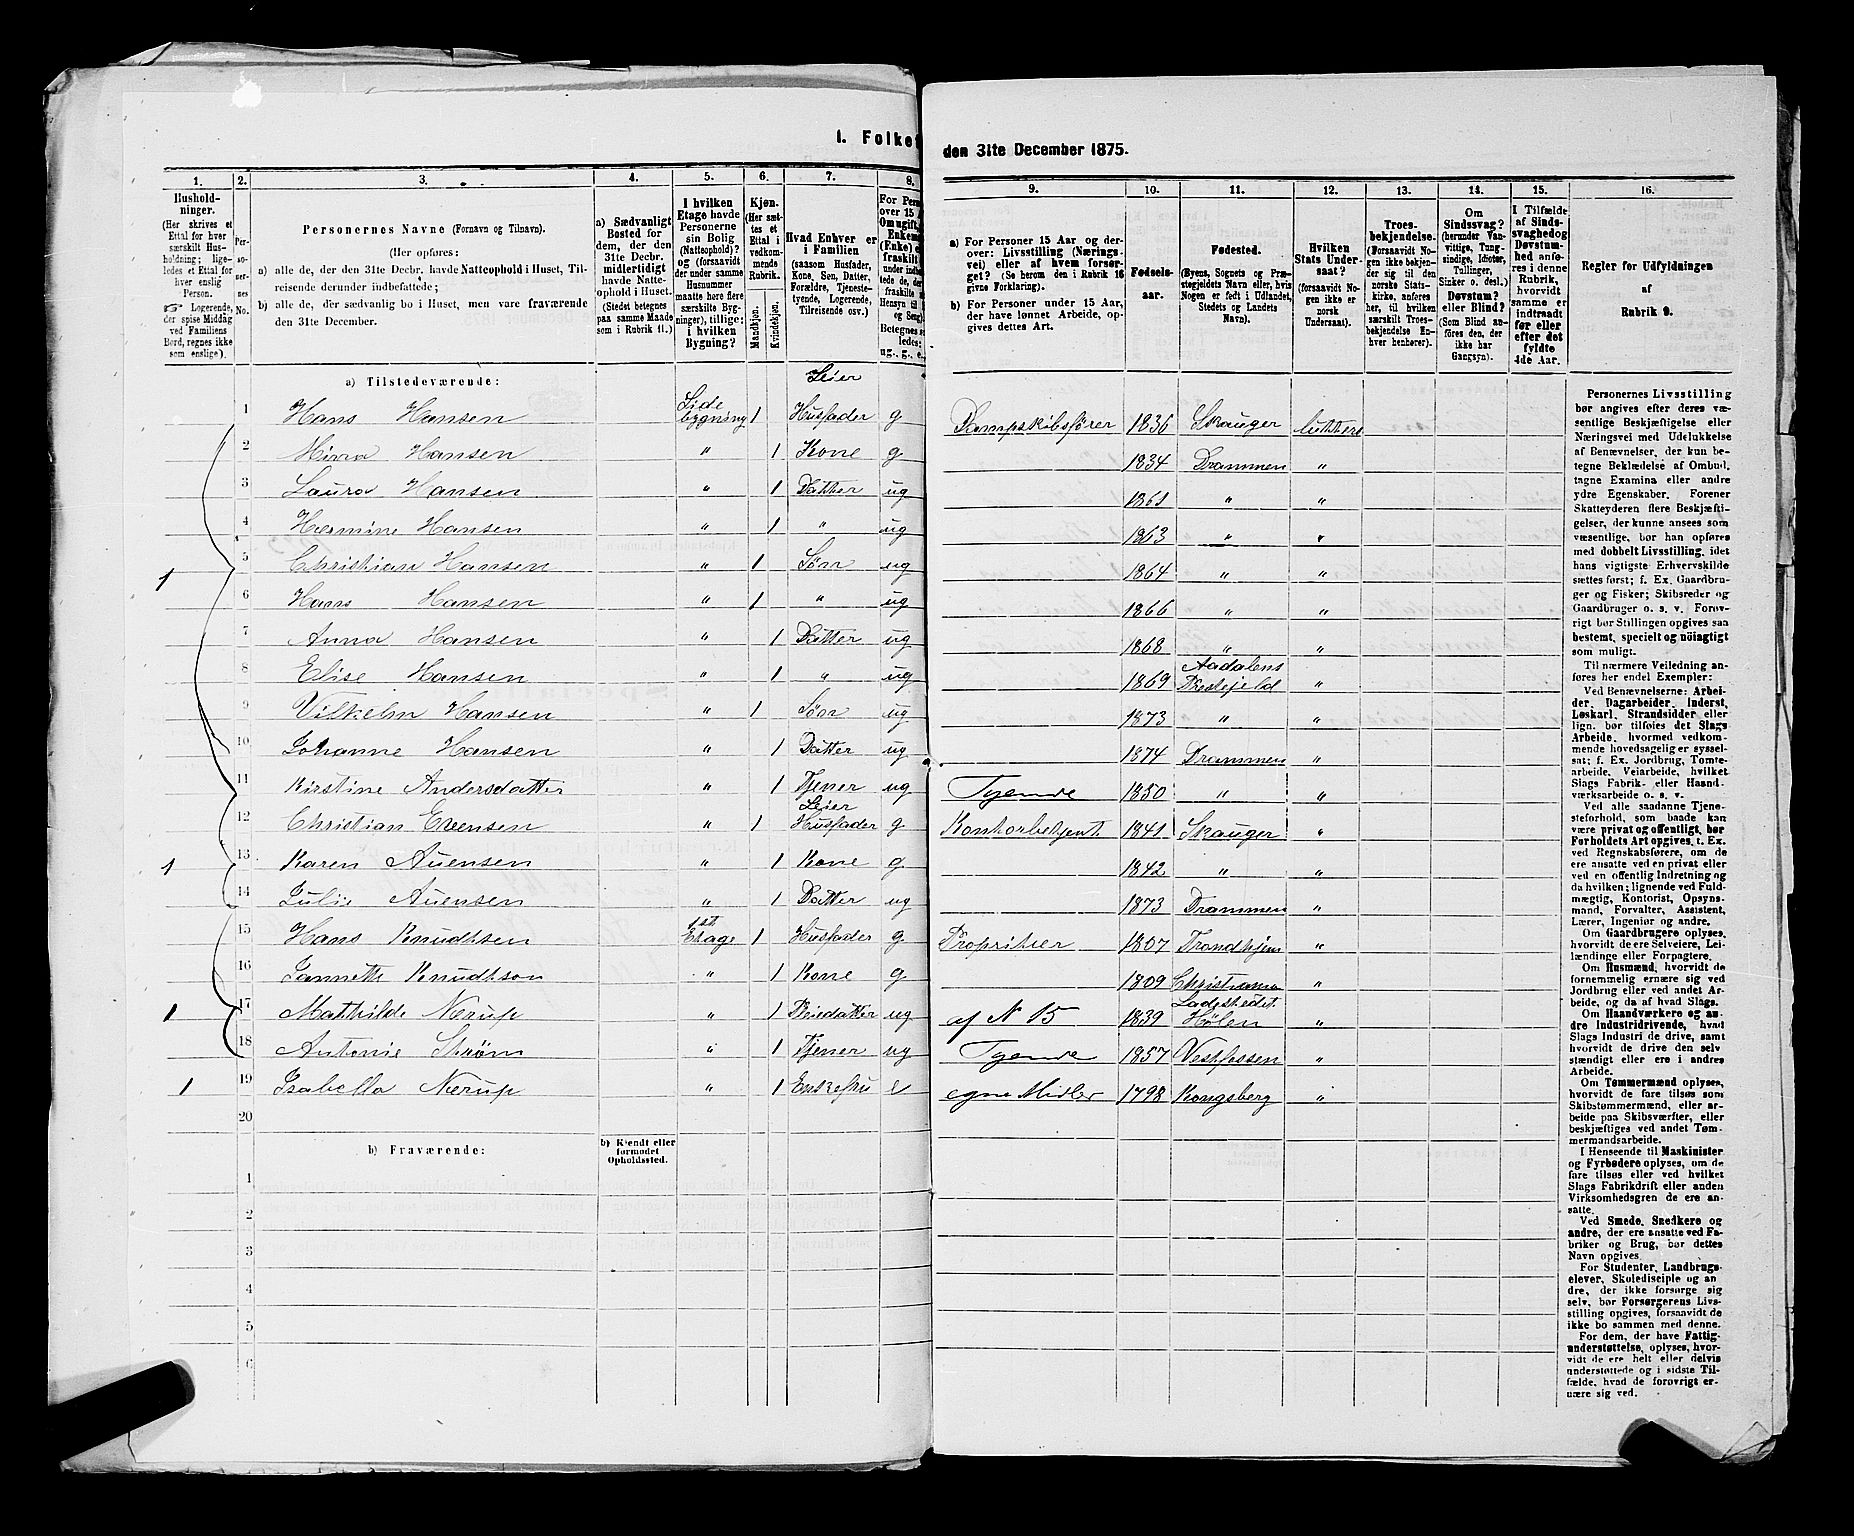 1. Folket
den 31te December 1875.
1. 2. 3. 4. 5. 6. 7. 8. 9. 10. 11. 12. 13. 14. 15. 16.
Hushold-
ninger.
(Her skrives et
Ettal for hver
særskilt Hus-
holdning; lige-
ledes et Ettal for
hver enslig
Person.
Logerende,
der spise Middag
ved Familiens
Bord, regnes ikke
som enslige).
Per-
so-
ner-
nes
No.
Personernes Navne (Fornavn og Tilnavn).
(Her opføres:
a) alle de, der den 31te Decbr. havde Natteophold i Huset, Til-
reisende derunder indbefattede;
b) alle de, der sædvanlig bo i Huset, men vare fraværende
den 31te December.
a) Sædvanligt
Bosted for
dem, der den
31te Decbr.
midlertidigt
havde Natte-
ophold i Huset.
(Stedet betegnes
paa samme Maade
som i Rubrik 11.)
I hvilken
Etage havde
Personerne
sin Bolig
(Natteophold)?
og (forsaavidt
der under samme
Husnummer
maatte høre flere
særskilte Byg-
ninger), tillige:
i hvilken
Bygning?
Kjøn.
(Her sæt-
tes et
Ettal i
vedkom-
mende
Rubrik.
Mandkjøn.
Kvindekjøn.
Hvad Enhver er
i Familien
(saasom Husfader,
Kone, Søn, Datter,
Forældre, Tjeneste-
tyende, Logerende,
Tilreisende osv.)
For Pers
over 15 A
Om ugift,
Enkema
(Enke) e
fraskilt
Betegnes s
ledes:
ug., g., e.
a) For Personer 15 Aar og der-
over: Livsstilling (Nærings-
vei) eller af hvem forsør-
get? (Se herom den i Rubrik 16
givne Forklaring).
b) For Personer under 15 Aar,
der have lønnet Arbeide, op-
gives dettes Art.
Fødsels-
aar.
Fødested.
(Byens, Sognets og Præ-
stegjeldets Navn eller, hvis
Nogen er født i Udlandet,
Stedets og Landets
Navn).
Hvilken
Stats Under-
saat?
(forsaavidt No-
gen ikke er
norsk
Undersaat).
Troes-
bekjendelse.
(Forsaavidt No-
gen ikke bekjen-
der sig til den
norske Stats-
kirke, anføres
her, til hvilken
særskilt Troes-
bekjendelse En-
hver henhører).
Om
Sindssvag?
(herunder Van-
vittige, Tung-
sindige, Idioter,
Tullinger,
Sinker o. desl.)
Døvstum?
eller Blind?
(Som Blind an-
føres den, der
ikke har
Gangsyn).
I Tilfælde
af Sinds-
svaghed og
Døvstum-
hed anfø-
res i denne
Rubrik,
hvorvidt
samme er
indtraadt
før eller
efter det
fyldte
4de Aar.
Regler for Udfyldningen
af
Rubrik 9.
a) Tilstedeværende:
1 Hans Hansen Sidebygning 1 Leier Husfader g Dampskibsfører 1836 Skauger
2 Mina Hansen " 1 Kone g 1834 Drammen "
3 Laura Hansen " 1 Datter ug 1861 " "
4 Hermine Hansen " 1 " ug 1863 " "
1 5 Christian Hansen " 1 Søn ug 1864 " "
6 Hans Hansen " 1 " ug 1866 " "
7 Anna Hansen " 1 Datter ug 1868 " "
8 Elise Hansen " 1 " ug 1869 Aadalens Præstejeld "
9 Vilhelm Hansen " 1 Søn ug 1873 " "
10 Johanne Hansen " 1 Datter ug 1874 Drammen "
11 Kirstine Andersdatter " 1 Tjener ug Tyende 1850 " "
12 Christian Evensen " 1 Leier Husfader g Kontorbetjent 1841 Skauger "
1 13 Karen Auensen " 1 Kone g 1842 " "
14 Julie Auensen " 1 Datter ug 1873 Drammen "
15 Hans Knudtsen 1st Etage 1 Husfader g Propritær 1807 Trondhjem "
16 Jannette Knudtson " 1 Kone g 1809 Christiania "
1 17 Mathilde Nerup " 1 Pleiedatter ug af N 15 1839 Ladestedet Hølen "
18 Antonie Strøm " 1 Tjener ug Tyende 1857 Vestfossen "
1 19 Isabella Nerup " 1 Enkefru e egne Midler 1798 Kongsberg "
20
b) Fraværende:
b) Kjendt eller
formodet
Opholdssted.
1
2
3
4
5
6
Personernes Livsstilling
bør angives efter deres væ-
sentlige Beskjæftigelse eller
Næringsvei med Udelukkelse
af Benævnelser, der kun be-
tegne Beklædelse af Ombud,
tagne Examina eller andre
ydre Egenskaber. Forener
Skatteyderen flere Beskjæfti-
gelser, der kunne ansees som
væsentlige, bør han opføres
med dobbelt Livsstilling, idet
hans vigtigste Erhvervskilde
sættes først; f. Ex. Gaardbru-
ger og Fisker; Skibsreder og
Gaardbruger o. s. v. Forøv-
rigt bør Stillingen opgives saa
bestemt, specielt og nöiagtigt
som muligt.
Til nærmere Veiledning an-
føres her endel Exempler:
Ved Benævnelserne: Arbei-
der, Dagarbeider, Inderst,
Løskarl, Strandsidder eller
lign. bør tilføies det Slags
Arbeide, hvormed vedkom-
mende hovedsagelig er syssel-
sat; f. Ex. Jordbrug, Tomte-
arbeide, Veiarbeide, hvilket
Slags Fabrik- eller Haand-
værksarbeide o. s. v.
Ved alle saadanne Tjene-
steforhold, som baade kan
være privat og offentligt, bør
Forholdets Art opgives, t. Ex.
ved Regnskabsførere, om de
ere ansatte ved en privat eller
ved en offentlig Indretning og
da hvilken; lignende ved Fuld-
mægtig, Kontorist, Opsyns-
mand, Forvalter, Assistent,
Lærer, Ingeniør og andre.
Om Gaardbrugere oplyses,
hvorvidt de ere Selveiere, Lei-
lændinge eller Forpagtere.
Om Husmænd, hvorvidt de
fornemmelig ernære sig ved
Jordbrug eller ved andet Ar-
beide, og da af hvad Slags.
Om Haandværkere og an-
dre Industridrivende, hvad
Slags Industri de drive, samt
hvorvidt de drive den selv-
stændigt eller ere i andres
Arbeide.
Om Tømmermænd oplyses,
hvorvidt de fare tilsøs som
Skibstømmermænd, eller ar-
beide paa Skibsværfter, eller
beskjæftiges ved andet Tøm-
mermandsarbeide.
I Henseende til Maskinister
og Fyrbødere oplyses, om de
fare tilsøs eller ved hvilket
Slags Fabrikdrift eller anden
Virksomhedsgren de ere an-
satte.
Ved Smede, Snedkere og
andre, der ere ansatte ved Fa-
briker og Brug, bør dettes
Navn opgives.
For Studenter, Landbrugs-
elever, Skoledisciple og an-
dre, der ikke forsørge sig
selv, bør Forsørgerens Livs-
stilling opgives, forsaavidt de
ikke bo sammen med denne.
For dem, der have Fattig-
understøttelse, oplyses, hvor-
vidt de ere helt eller delvis
understøttede og i sidste Til-
fælde, hvad de forøvrigt er-
nære sig ved.